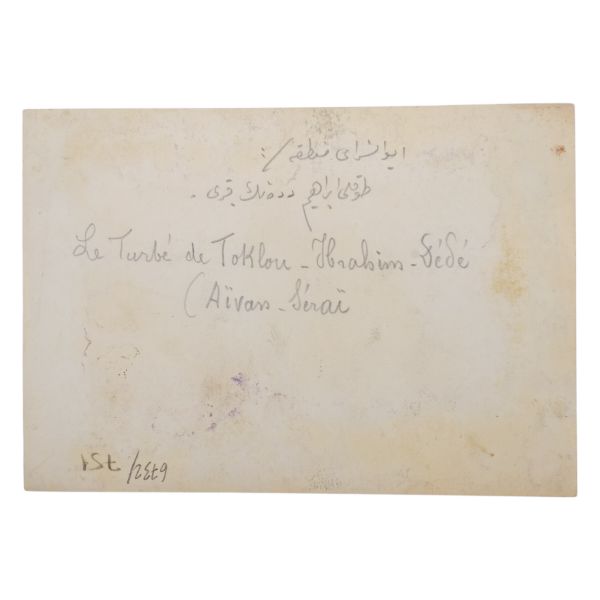 ايوانسراى منطقه /:
طوقلى ابراهيم دده نك قبرى .
Le Turbé de Toklou - Ibrahim - Dédé
(Aïvan - Séraï